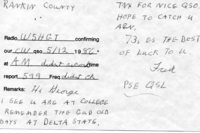 RANKIN COUNTY
Radio W5HGT confirming
our CW QSO 5/12 1986
at A.M. didnt record time
report 599 Freq didnt ck
Remarks: Hi George
I SEE U ARE AT COLLEGE
REMEMBER THE GUD OLD
DAYS AT DELTA STATE.
TNX FOR NICE QSO.
HOPE TO CATCH U
AGN.
73, ES THE BEST
OF LUCK TO U
Fred
PSE QSL